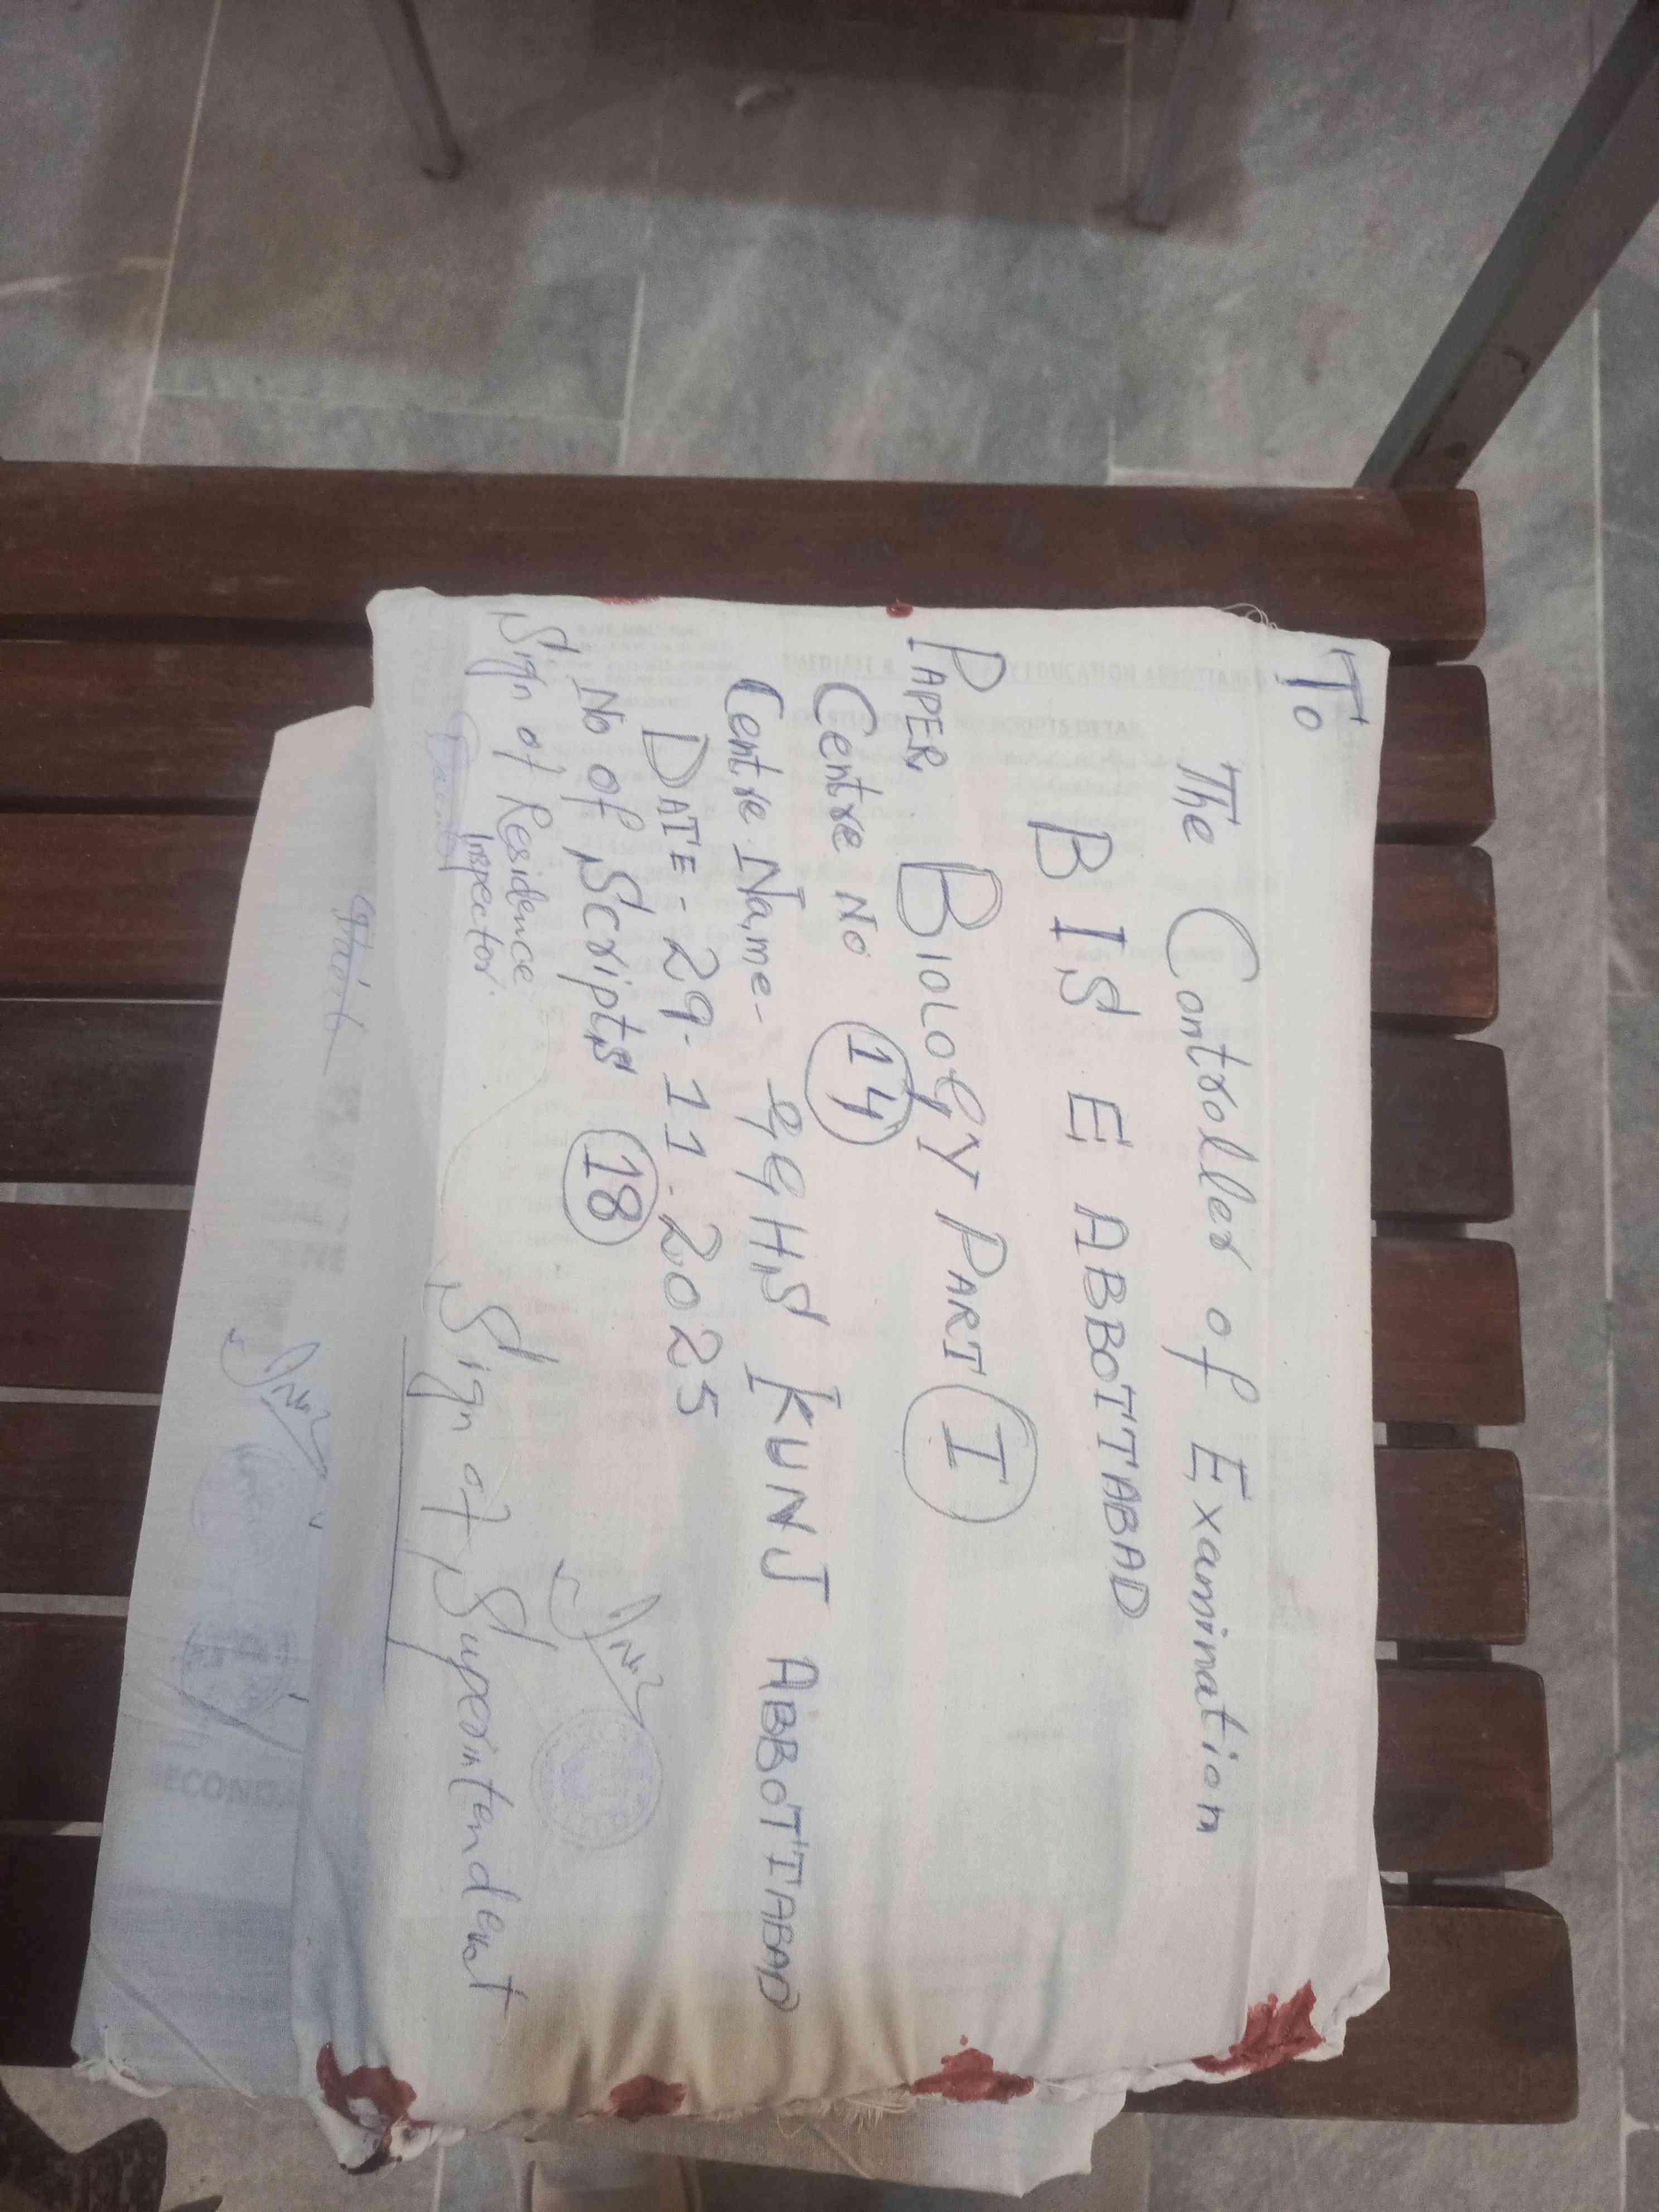 To
The Controller of Examination
BISE ABBOTTABAD
PAPER BIOLOGY PART I
Centre No 14
Centre Name - GGHS KUNJ ABBOTTABAD
DATE - 29.11.2025
No of Scripts 18
Sign of Residence Inspector.
Sign of Superintendent
SECONDA